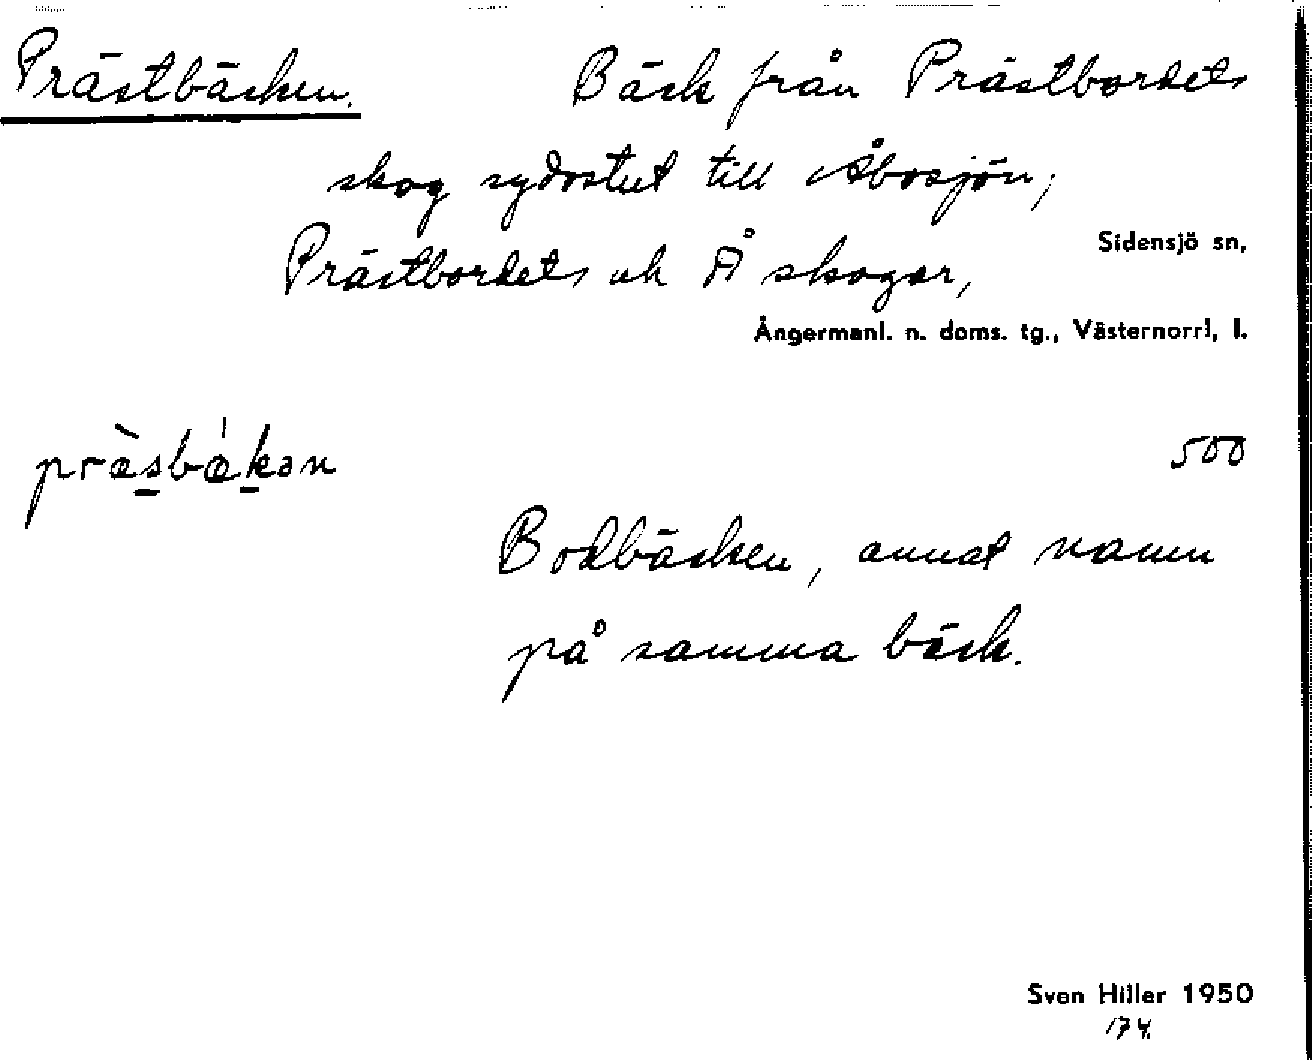 Prästbäcken. Bäck från Prästbordets
skog sydostut till Åbosjön;
Sidensjö sn,
Prästbordets och Å skogar,
Ångermanl. n. doms. tg., Västernorrl, l.
præ̀sbǽkən 500
Bodbäcken, annat namn
på samma bäck.
Sven Hiller 1950
174